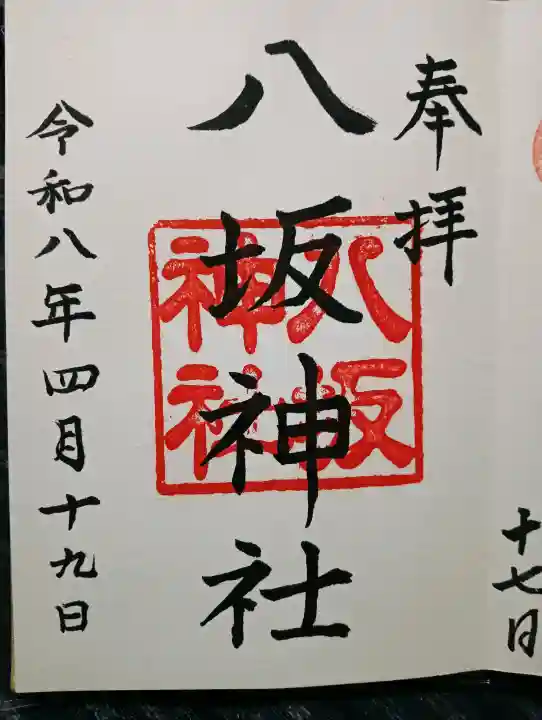 奉拝
八坂神社
八坂神社
令和八年四月十九日
十七日